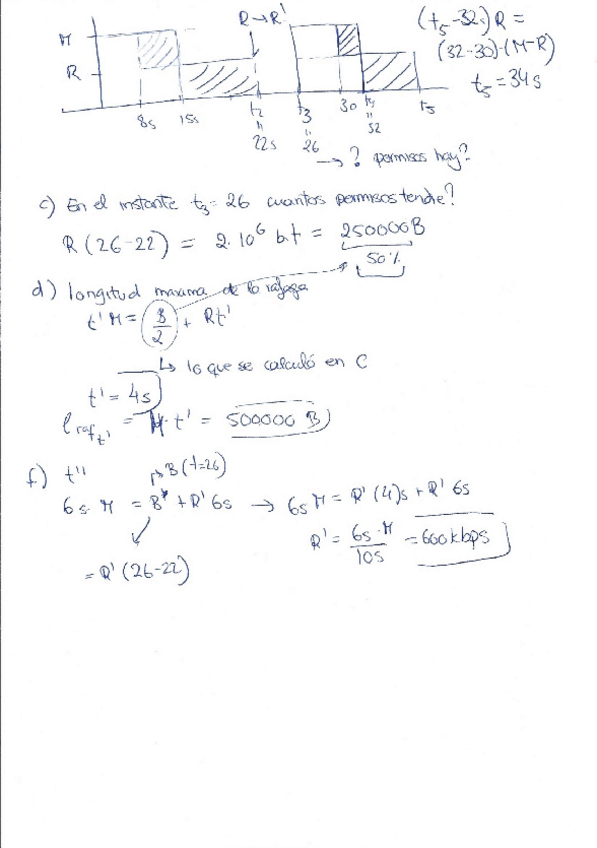 R→R'
M
R
8s 15s t2 t3 30 t4 t5
= 22s = 26 = 32
(t5-32)R =
(32-30)·(M-R)
t5 = 34s
→ ? permisos hay?
c) En el instante t3 = 26 cuantos permisos tendre?
R (26-22) = 2·10⁶ bit = 250000B
50%
d) longitud maxima de la rafaga
t' M = B/2 + Rt'
↳ lo que se calculó en C
t' = 4s
l raf t' = M·t' = 500000 B
f) t'' → B (t=26)
6s · M = B* + R' 6s → 6s M = R' (4)s + R' 6s
= R' (26-22)
R' = 6s·M/10s = 600kbps